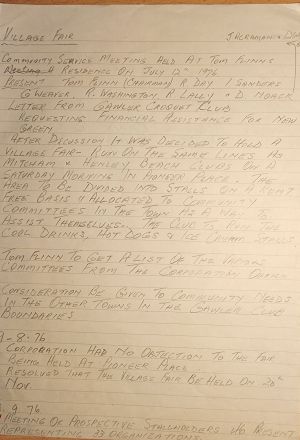 VILLAGE FAIR
COMMUNITY SERVICE MEETING HELD AT TOM FLINNS
RESIDENCE ON JULY 12TH 1976
PRESENT TOM FLINN (CHAIRMAN) R DAY I SANDERS
G WEAVER, R. WASHINGTON, R LALLY & D. NOACK
LETTER FROM GAWLER CROQUET CLUB
REQUESTING FINANCIAL ASSISTANCE FOR NEW
GREEN
AFTER DISCUSSION IT WAS DECIDED TO HOLD A
VILLAGE FAIR - RUN ON THE SAME LINES AS
MITCHAM & HENLEY BEACH CLUBS ON A
SATURDAY MORNING IN PIONEER PLACE. THE
AREA TO BE DIVIDED INTO STALLS ON A RENT
FREE BASIS & ALLOCATED TO COMMUNITY
COMMITTEES IN THE TOWN AS A WAY TO
ASSIST THEMSELVES. THE CLUB THE
COOL DRINKS, HOT DOGS & ICE CREAM STALLS
TOM FLINN TO GET A LIST OF THE VARIOUS
COMMITTEES FROM THE CORPORATION
CONSIDERATION BE GIVEN TO COMMUNITY NEEDS
IN THE OTHER TOWNS IN THE GAWLER CLUB
BOUNDARIES
9-8-76
CORPORATION HAD NO OBJECTION TO THE FAIR
BEING HELD AT PIONEER PLACE
RESOLVED THAT THE VILLAGE FAIR BE HELD ON 20TH
NOV.
9 76
MEETING OF PROSPECTIVE STALLHOLDERS 46 PRESENT
REPRESENTING 23 ORGANIZATIONS